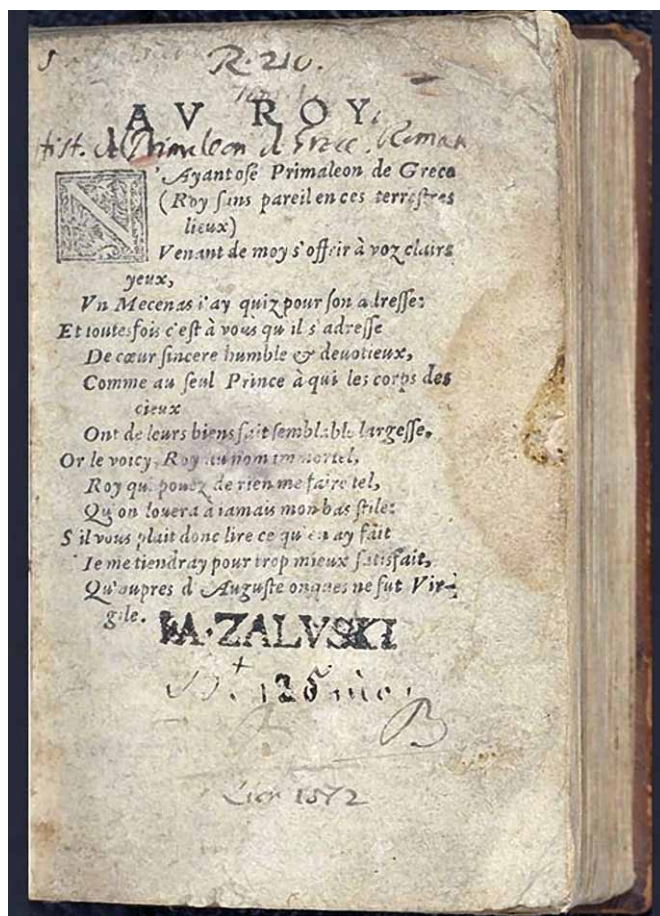 R. 210.
AV ROY.
Hist. de Primaleon de Grece. Roman
N'Ayant osé Primaleon de Grece
(Roy sans pareil en ces terrestres
lieux)
Venant de moy s'offrir à voz clairs
yeux,
Vn Mecenas i'ay quiz pour son adresse:
Et toutesfois c'est à vous qu'il s'adresse
De cœur sincere humble & deuotieux,
Comme au seul Prince à qui les corps des
cieux
Ont de leurs biens fait semblable largesse.
Or le voicy, Roy au nom immortel,
Roy qui pouez de rien me faire tel,
Qu'on louera à iamais mon bas stile:
S'il vous plait donc lire ce qu'en ay fait
Ie me tiendray pour trop mieux satisfait,
Qu'aupres d'Auguste onques ne fut Vir-
gile.
I.A. ZALVSKI
B
Lion 1572